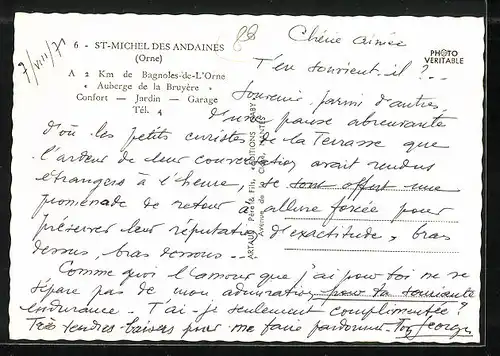 7/VIII/71
6 - ST-MICHEL DES ANDAINES
(Orne)
A 2 Km de Bagnoles-de-L'Orne
« Auberge de la Bruyère »
Confort — Jardin — Garage
Tél. 4
88
PHOTO
VERITABLE
ARTAUD Père & Fils, EDITIONS GABY
Avenue de la
Chérie aimée
T'en souvient-il ?..
Souvenir, parmi d'autres,
d'une pause abreuvante
d'où les petits curistes de la Terrasse que
l'ardeur de leur conversation avait rendus
étrangers à l'heure, se sont offert une
promenade de retour à allure forcée pour
préserver leur réputation d'exactitude, bras
dessus, bras dessous...
Comme quoi l'amour que j'ai pour toi ne se
sépare pas de mon admiration pour ta souriante
endurance. T'ai-je seulement complimentée ?
Très tendres baisers pour me faire pardonner. Ton Georges